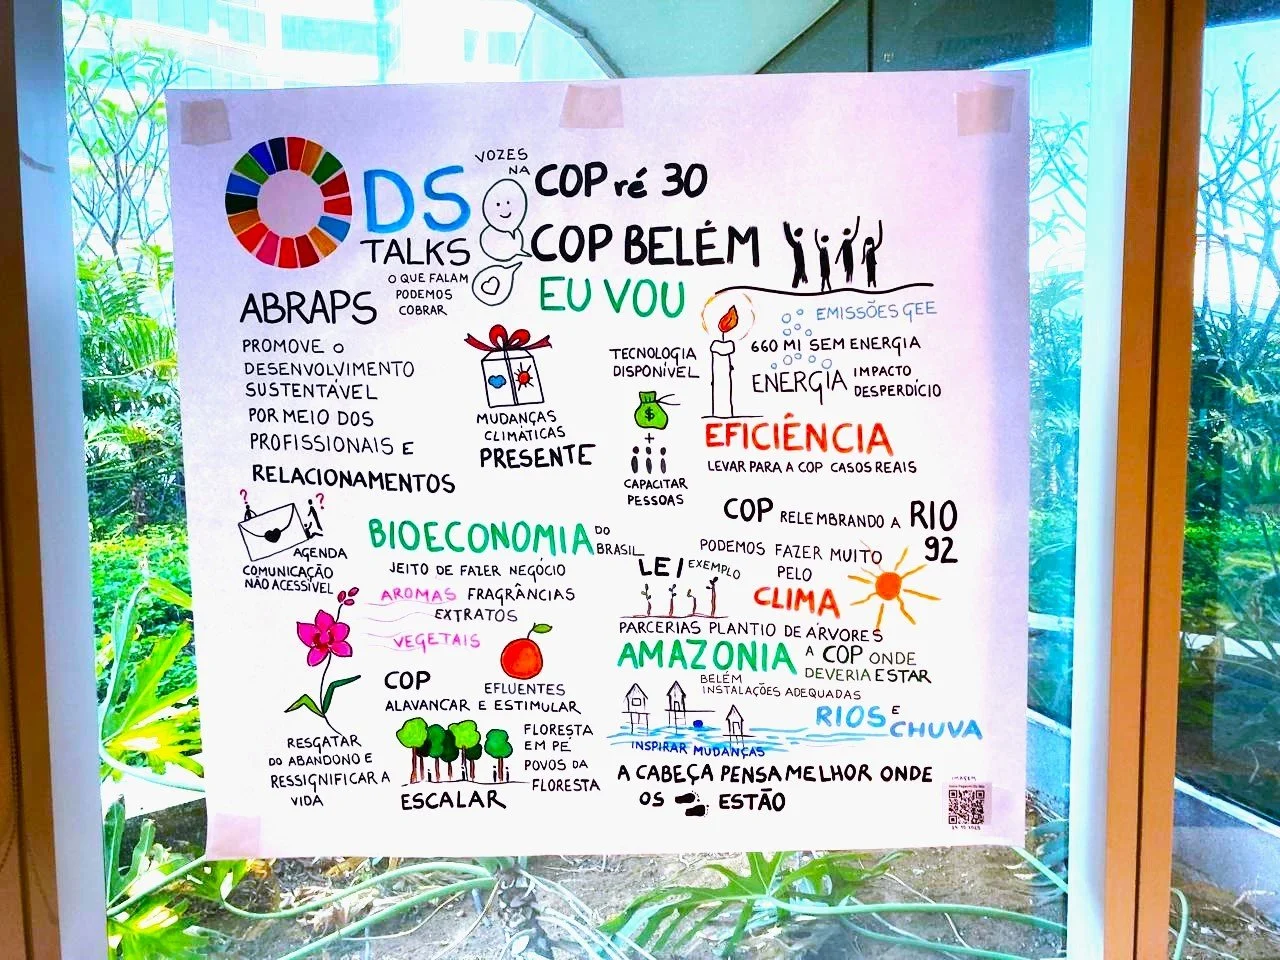 ODS
TALKS
O QUE FALAM
PODEMOS
COBRAR
VOZES
NA
COP ré 30
COP BELÉM
EU VOU
ABRAPS
PROMOVE o
DESENVOLVIMENTO
SUSTENTÁVEL
POR MEIO DOS
PROFISSIONAIS E
RELACIONAMENTOS
? ?
AGENDA
COMUNICAÇÃO
NÃO ACESSÍVEL
MUDANÇAS
CLIMÁTICAS
PRESENTE
TECNOLOGIA
DISPONÍVEL
$
+
CAPACITAR
PESSOAS
EMISSÕES GEE
660 MI SEM ENERGIA
ENERGIA IMPACTO
DESPERDÍCIO
EFICIÊNCIA
LEVAR PARA A COP CASOS REAIS
COP RELEMBRANDO A RIO
92
BIOECONOMIA DO
BRASIL
JEITO DE FAZER NEGÓCIO
AROMAS FRAGRÂNCIAS
EXTRATOS
VEGETAIS
COP EFLUENTES
ALAVANCAR E ESTIMULAR
RESGATAR
DO ABANDONO E
RESSIGNIFICAR A
VIDA
FLORESTA
EM PÉ
POVOS DA
FLORESTA
ESCALAR
LEI EXEMPLO
PODEMOS FAZER MUITO
PELO
CLIMA
PARCERIAS PLANTIO DE ÁRVORES
AMAZONIA A COP ONDE
DEVERIA ESTAR
BELÉM
INSTALAÇÕES ADEQUADAS
RIOS E
CHUVA
INSPIRAR MUDANÇAS
A CABEÇA PENSA MELHOR ONDE
OS ESTÃO
IMAGEM